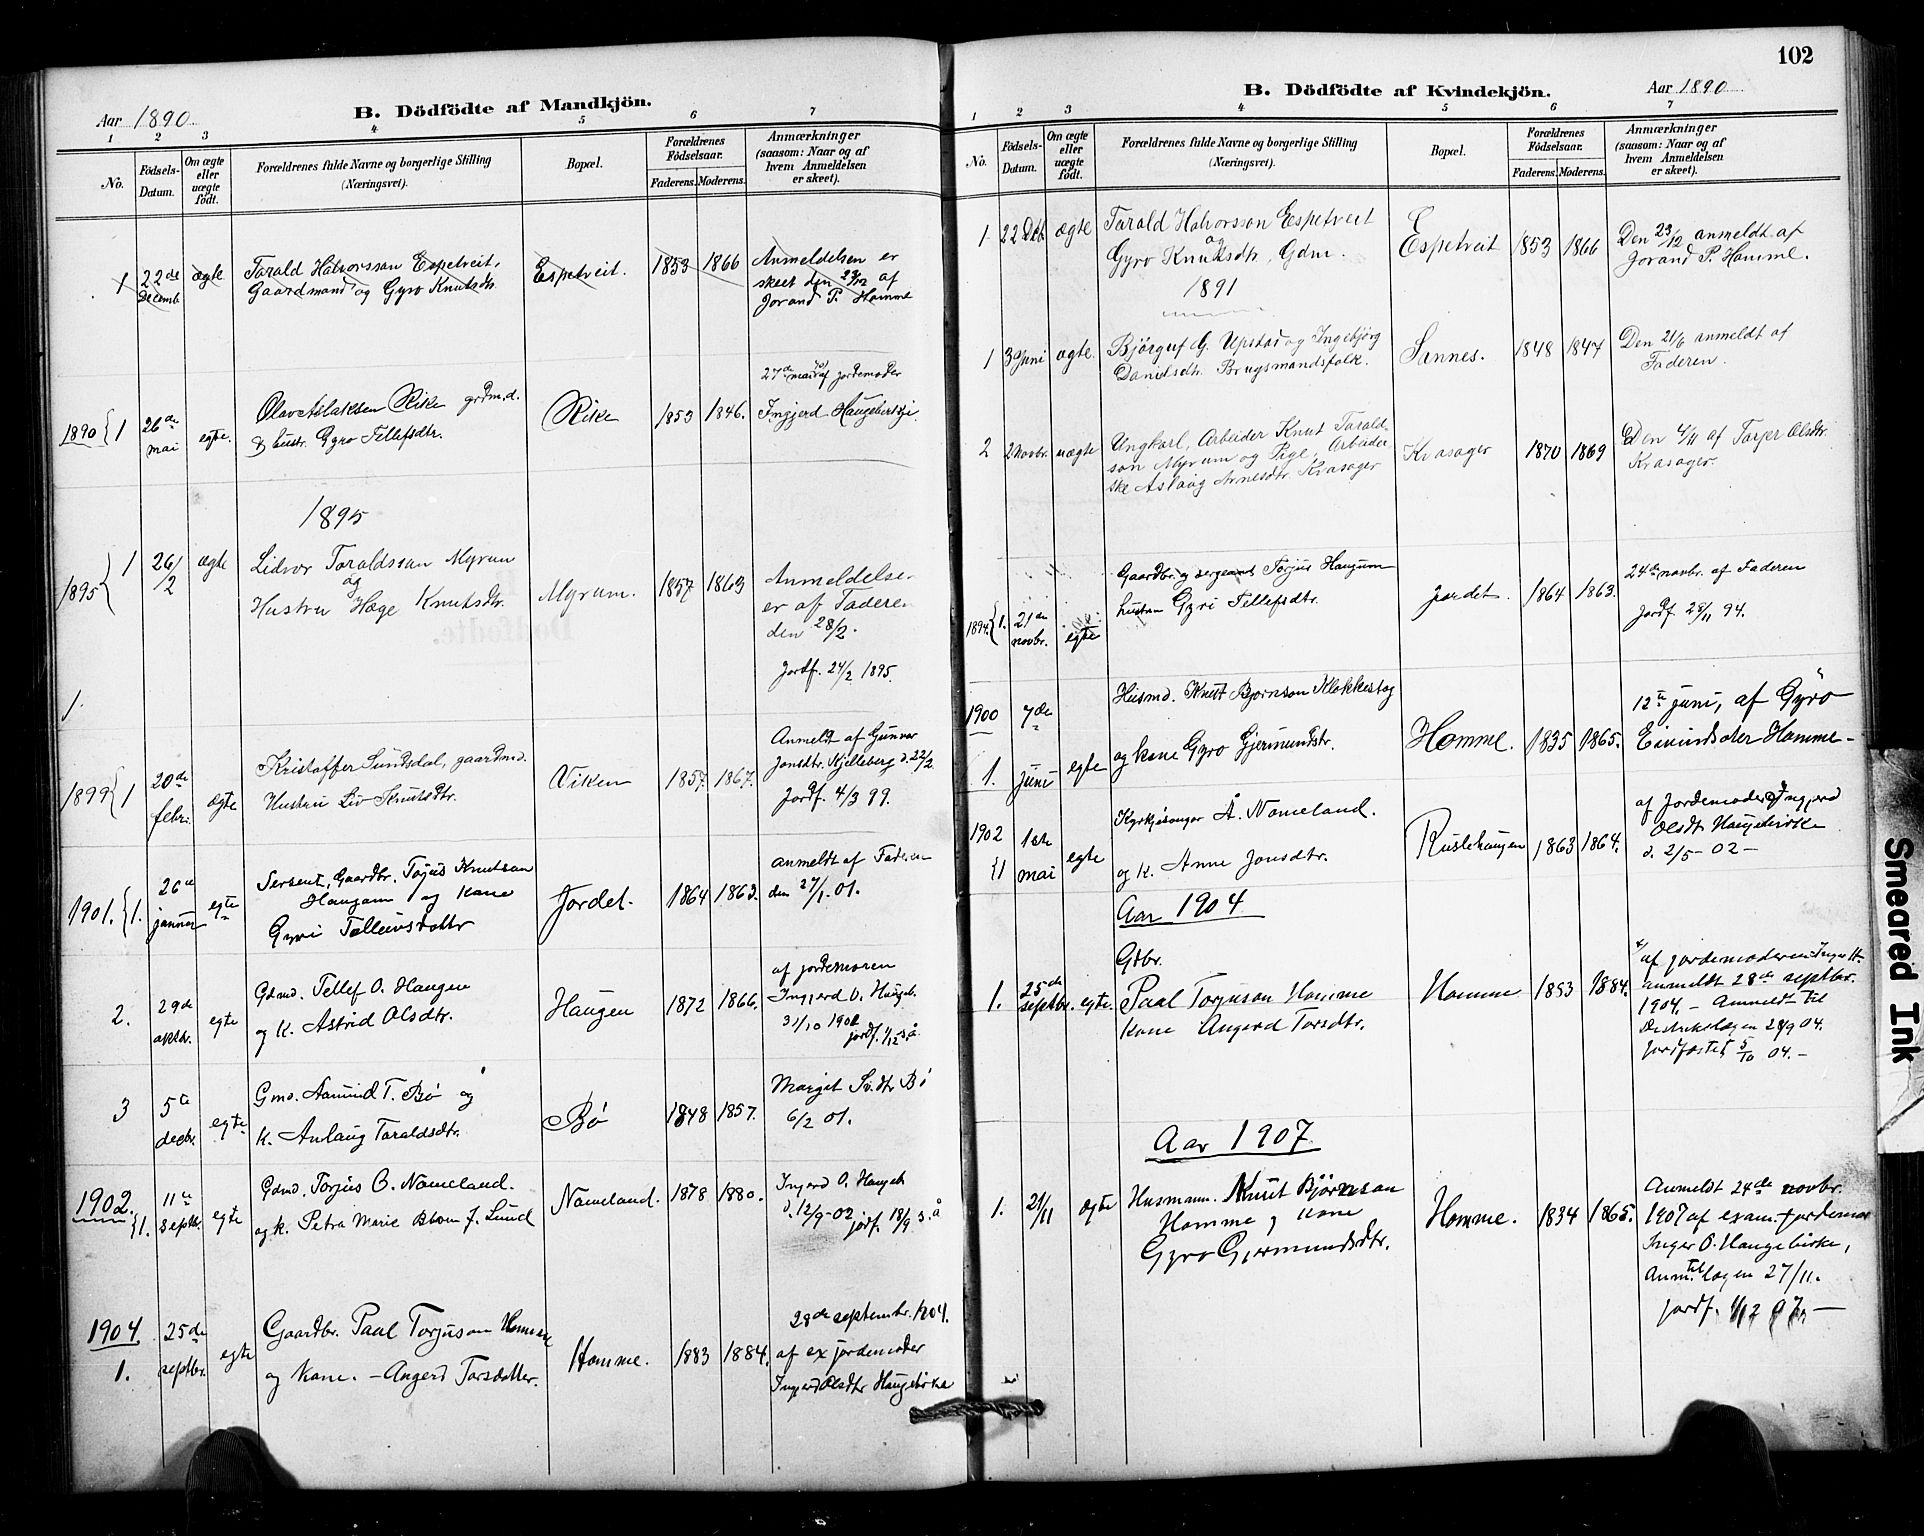 Aar 1890
B. Dödfödte af Mandkjön.
1 2 3 4 5 6 7
No.
Födsels-Datum.
Om ægte eller uægte födt.
Forældrenes fulde Navne og borgerlige Stilling
(Næringsvei).
Bopæl.
Forældrenes Födselsaar.
Faderens. Moderens.
Anmærkninger
(saasom: Naar og af
hvem Anmeldelsen
er skeet).
1 22de Decemb ægte
Tarald Halvorsson Espetveit,
Gaardmand og Gyro Knutsdtr
Espetveit. 1853 1866
Anmeldelsen er
skeet den 23/12 af
Jorand P. Homme
1890 { 1 26de mai egte.
Olav Aslaksen Rike grdm.d.
& hustr. Gyro Tellefsdtr.
Rike 1853 1846.
27de mai af jordemoder
Ingjerd Haugebirkji
1895
1895 { 1 26/2 ægte
Lidvor Taraldsson Myrum
og
Hustru Hæge Knutsdtr.
Myrum. 1857 1863
Anmeldelse
er af Faderen
den 28/2.
Jordf. 27/2 1895.
1.
1899 { 1 20de febr. ægte
Kristoffer Sundsdal, gaardmd.
Hustru Liv Knutsdtr.
Viken 1857. 1867.
Anmeldt af Gunvor
Jonsdtr. Kjelleberg d. 22/2.
Jordf. 4/3 99.
1901. { 1. 26de januar egte
Sersent, Gaardbr. Tojus Knutson
Haugam og Kone
Gyri Tellevsdatter
Jordet. 1864 1863.
anmeldt af Faderen
den 27/1. 01.
2. 29de oktbr. egte
Gdmd. Tellef O. Haugen
og K. Astrid Olsdtr.
Haugen 1872 1866.
af jordemoren
Ingjerd O. Haugeb.
31/10 1901
jordf. 1/12 s.å.
3 5te decbr. egte
Gmd. Aamund T. Bø og
K. Anlaug Taraldsdtr.
Bø 1848 1857.
Margit Sv.dtr Bø
6/2 01.
1902. { 1. 11te septbr. egte
Gdmd. Torjus O. Nomeland.
og k. Petra Marie Blom f. Lund
Nomeland. 1878 1880.
Ingerd O. Haugeb
d. 12/9-02 jorf. 18/9 s. å
1904. 1. 25de septbr. egte
Gaardbr. Paal Torjuson Homme
og Kone. - Angerd Torsdatter.
Homme. 1883 1884.
28de septembr. 1904.
af ex jordemoder
Ingjerd Olsdtr Haugebirke
102
B. Dödfödte af Kvindekjön.
Aar 1890
1 2 3 4 5 6 7
No.
Födsels-Datum.
Om ægte eller uægte födt.
Forældrenes fulde Navne og borgerlige Stilling
(Næringsvei).
Bopæl.
Forældrenes Födselsaar.
Faderens. Moderens.
Anmærkninger
(saasom: Naar og af
hvem Anmeldelsen
er skeet).
1 22 Deb ægte
Tarald Halvorsson Espetveit
og
Gyro Knutsdtr, Gdm.
Espetveit 1853 1866
Den 23/12 anmeldt af
Jorand P. Homme.
1891
1 3 Juni ægte.
Björguf G. Upstad og Ingebjörg
Danielsdtr. Brugsmandsfolk.
Sinnes. 1848 1847
Den 21/6 anmeldt af
Faderen.
2 2 Novbr. uægte
Ungkarl, Arbeider Knut Tarald-
son Myrum og Pige, Arbeider-
ske Aslaug Arnesdtr. Kvasager
Kvasager 1870 1869
Den 4/11 af Torjer Olsdtr.
Kvasager.
1894. { 1. 21de novbr. egte
Gaardbr. og sergeant Torjus Haugum
hustru Gyri Tellefsdtr.
Jordet. 1864 1863.
24de novbr. af Faderen
Jordf. 28/11 94.
1900 1. 7de juni egte
Husmd. Knut Bjørnson Klokkestog
og kone Gyro Gjermundsdtr.
Homme. 1835 1865.
12te juni, af Gyro
Eivindsdter Homme -
1902 { 1 1ste mai egte
Kyrkjesongar A. Nomeland.
og k. Anne Jonsdtr.
Rustehaugen 1863 1864.
af jordemoder Ingjerd
Olsdtr Haugebirke
d. 2/5 - 02 -
Aar 1904
1. 25de septbr. egte.
Gdbr.
Paal Torjuson Homme
Kone Angerd Torsdtr.
Homme 1883 1884.
af jordemoderen Inger H.
anmeldt 28de septbr.
1904. - Anmeldt til
Distriktslægen 28/9 04.
Jordfæstet 5/10 04. -
Aar 1907.
1. 21/11 egte
Husmann. Knut Bjørnson
Homme og Kone
Gyro Gjermundsdtr.
Homme. 1834 1865.
Anmeldt 24de novbr.
1907 af exam. jordemor
Inger O. Haugebirke,
Anm. til lægen 27/11.
jordf. 1/12 07. -
Smeared Ink